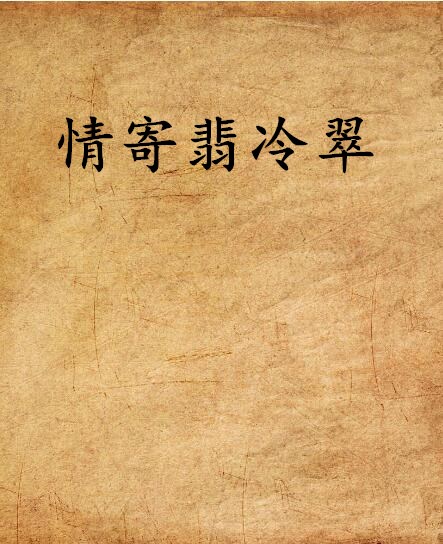 情寄翡冷翠